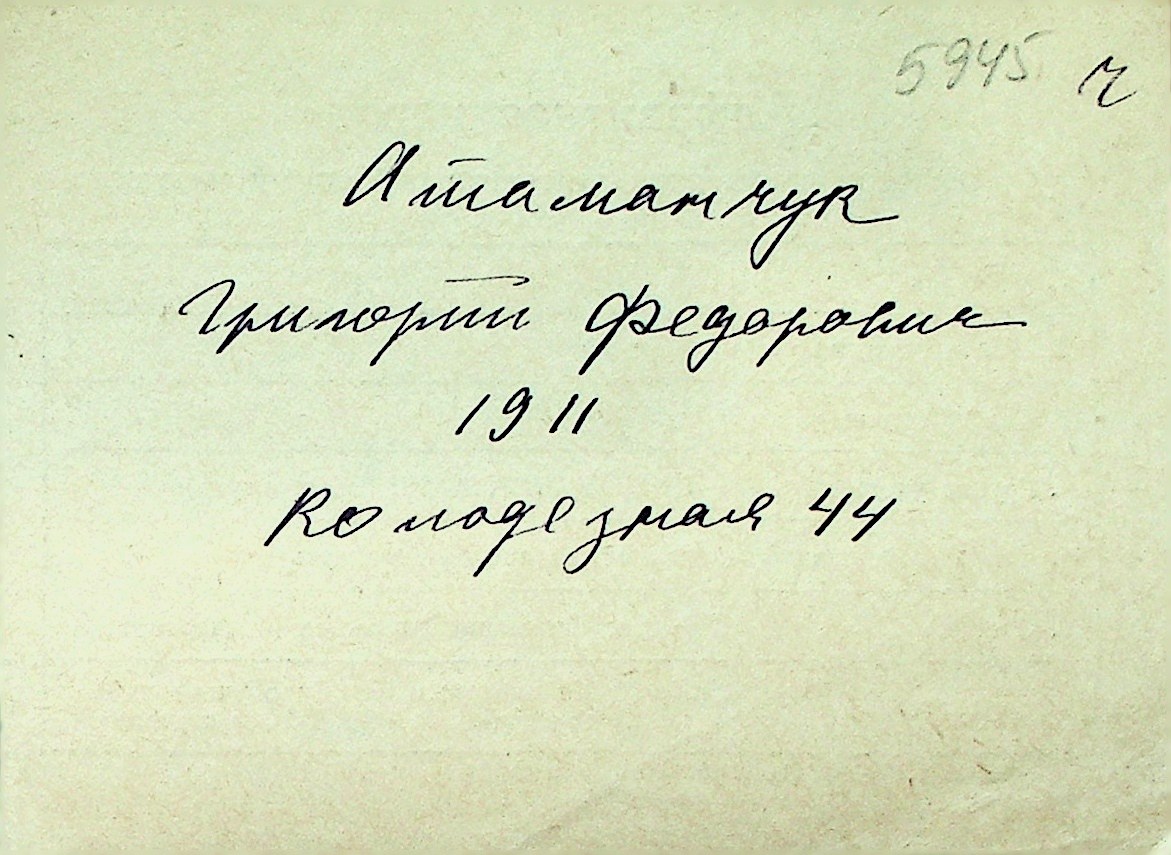 5945 ч
Атаманчук
Григорий Федорович
1911
Колодезная 44